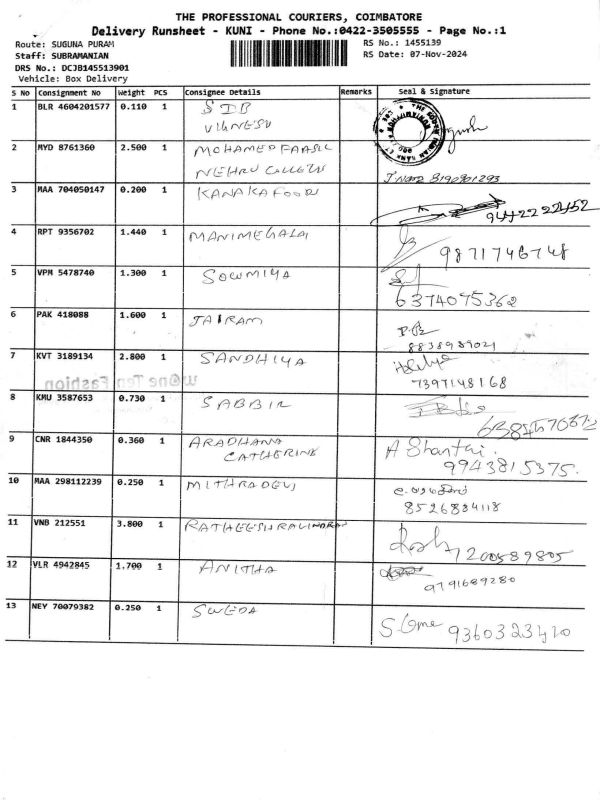 THE PROFESSIONAL COURIERS, COIMBATORE
Delivery Runsheet - KUNI - Phone No.:0422-3505555 - Page No.:1
Route: SUGUNA PURAM
RS No.: 1455139
Staff: SUBRAMANIAN
RS Date: 07-Nov-2024
DRS No.: DCJB145513901
Vehicle: Box Delivery
S No Consignment No Weight PCS Consignee Details Remarks Seal & Signature
1 BLR 4604201577 0.110 1 SIB
VIGNESU
2 MYD 8761360 2.500 1 MOHAMED FAASIL
NEHRU
8190901293
3 MAA 704050147 0.200 1 KANAKA FOODS
9442222452
4 RPT 9356702 1.440 1 MANIMEGALAI
9871746748
5 VPM 5478740 1.300 1 SOWMIYA
6374075362
6 PAK 418088 1.600 1 JAIRAM
8838989021
7 KVT 3189134 2.800 1 SANDHIYA
7397148168
w@One Ten Fashion
8 KMU 3587653 0.730 1 SABBIR
9 CNR 1844350 0.360 1 ARADHANA
CATHERINE
A Shanthi.
9943815375.
10 MAA 298112239 0.250 1 MITHRADEVI
8526884118
11 VNB 212551 3.800 1 RATHEESH RAVINDRAN
7200589805
12 VLR 4942845 1.700 1 ANITHA
9791689280
13 NEY 70079382 0.250 1 SWEDA
9360323420